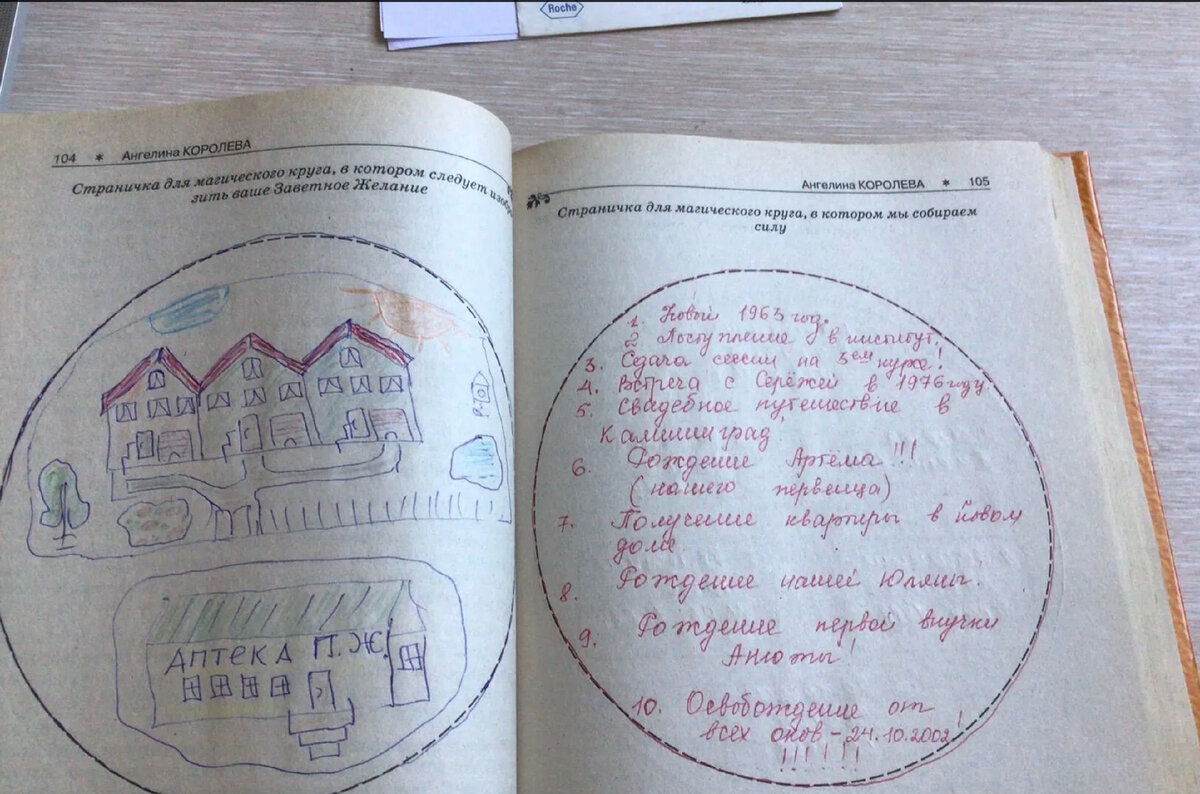 Roche
104 * Ангелина КОРОЛЕВА
Страничка для магического круга, в котором следует изобра
зить ваше Заветное Желание
АПТЕКА П.Ж.
Ангелина КОРОЛЕВА * 105
Страничка для магического круга, в котором мы собираем
силу
1. Новый 1963 год.
2 Поступление в институт.
3. Сдача сессии на 3ем курсе!
4. Встреча с Серёжей в 1976 году
5. Свадебное путешествие в
Калининград
6. Рождение Артёма!!!
(нашего первенца)
7. Получение квартиры в новом
доме.
8. Рождение нашей Юляши!
9. Рождение первой внучки
Анюты!
10. Освобождение от
всех оков - 24.10.2002!
!!!!!!